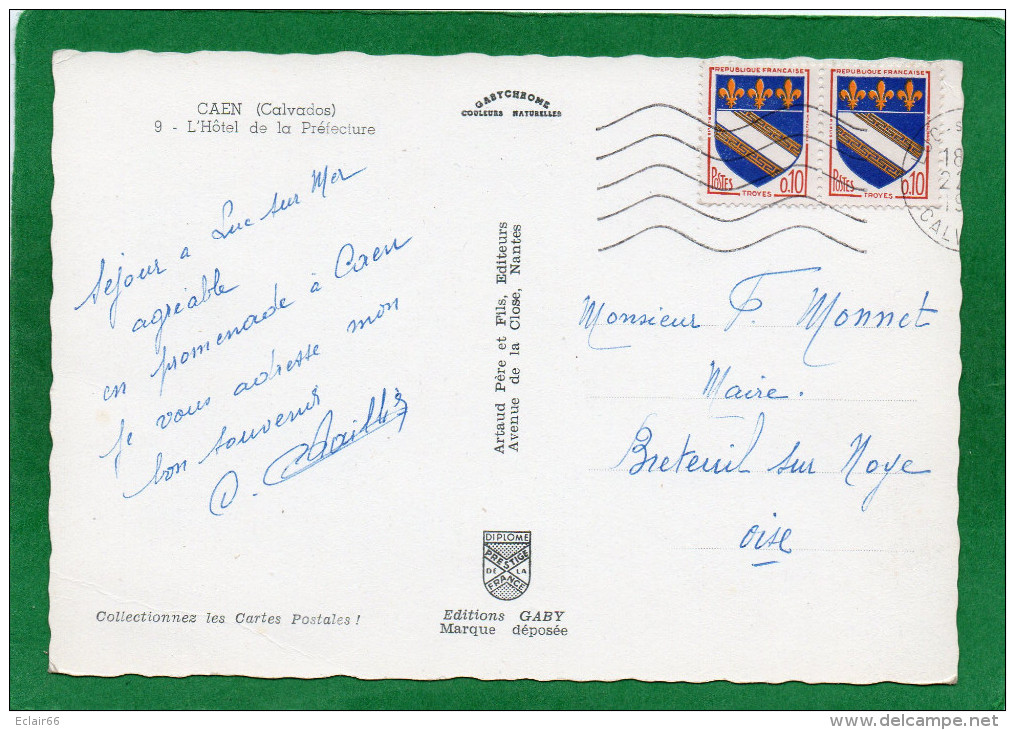 CAEN (Calvados)
9 - L'Hôtel de la Préfecture
GABYCHROME
COULEURS NATURELLES
REPUBLIQUE FRANÇAISE
POSTES
0.10
TROYES
REPUBLIQUE FRANÇAISE
POSTES
0.10
TROYES
18
CALV
Séjour à Luc sur Mer
agréable
en promenade à Caen
je vous adresse mon
bon souvenir
Artaud Père et Fils, Editeurs
Avenue de la Close, Nantes
Monsieur F. Monnet
Maire.
Breteuil sur Noye
Oise
DIPLOME
PRESTIGE
DE LA
FRANCE
Collectionnez les Cartes Postales !
Editions GABY
Marque déposée
Eclair66
www.delcampe.net